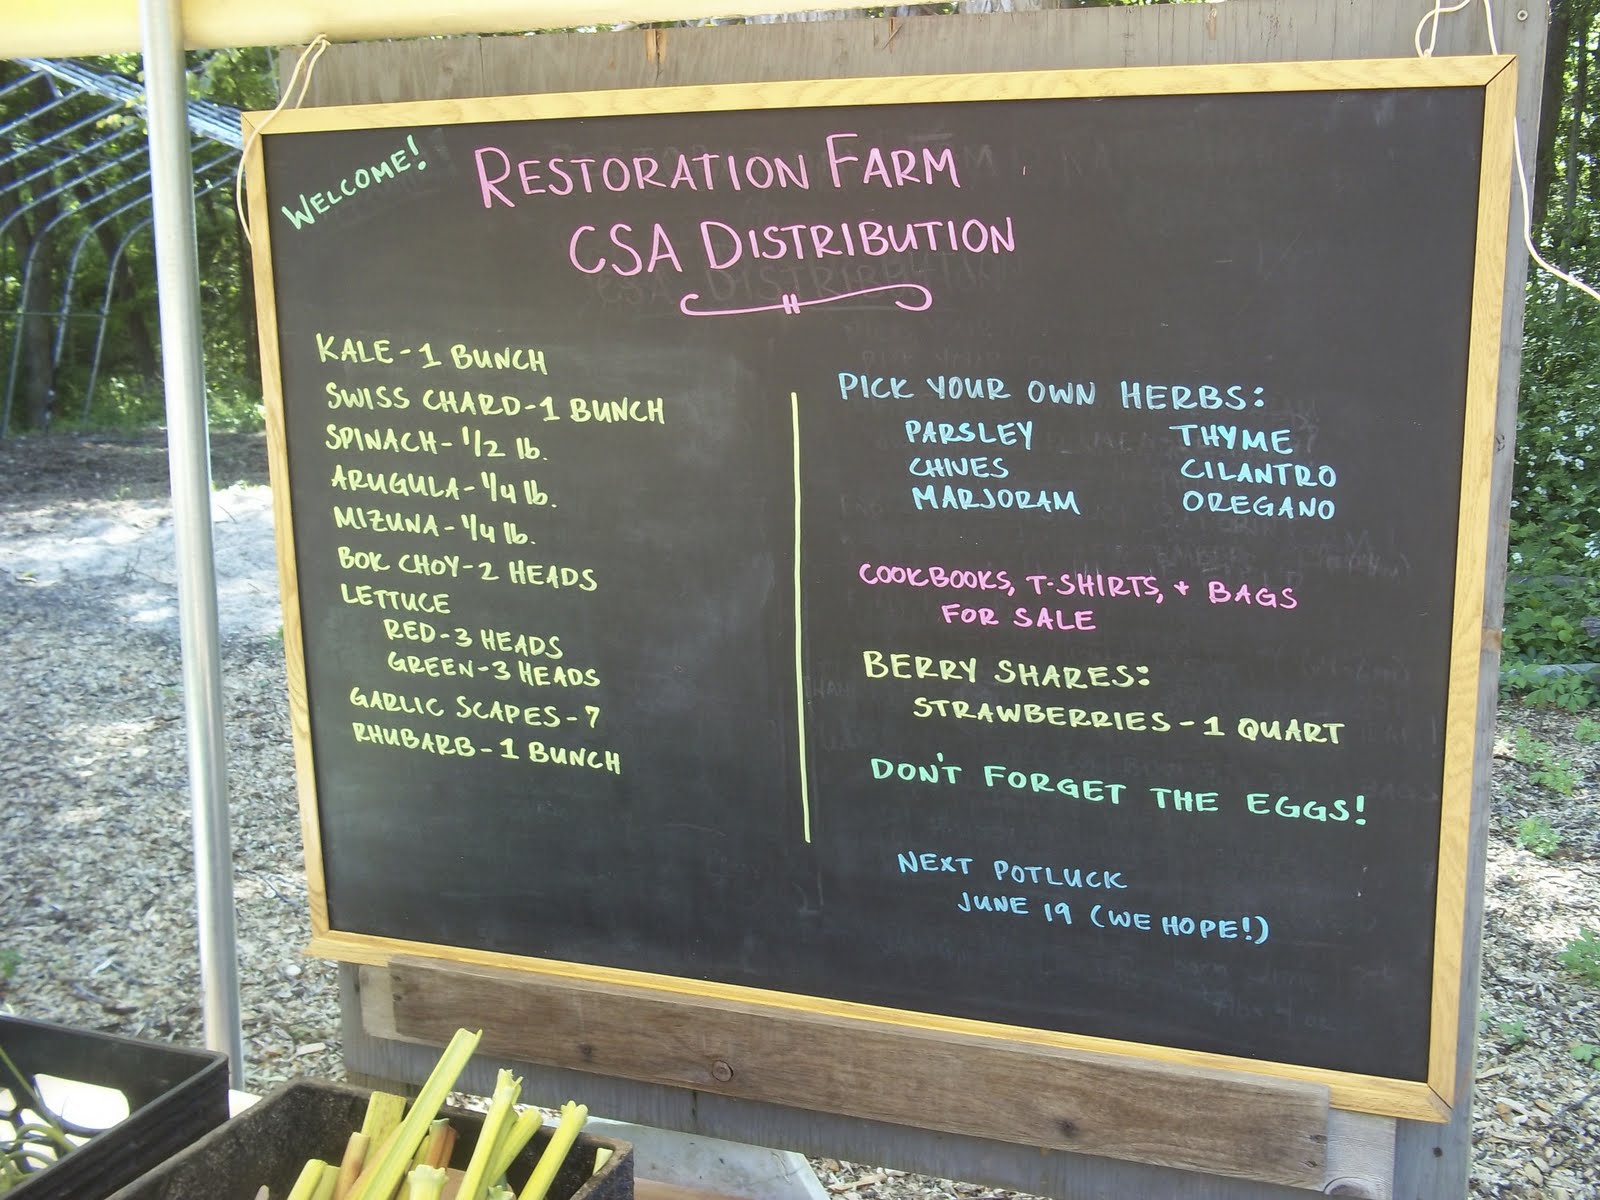 WELCOME!
RESTORATION FARM
CSA DISTRIBUTION
KALE - 1 BUNCH
SWISS CHARD - 1 BUNCH
SPINACH - 1/2 lb.
ARUGULA - 1/4 lb.
MIZUNA - 1/4 lb.
BOK CHOY - 2 HEADS
LETTUCE
RED - 3 HEADS
GREEN - 3 HEADS
GARLIC SCAPES - 7
RHUBARB - 1 BUNCH
PICK YOUR OWN HERBS:
PARSLEY THYME
CHIVES CILANTRO
MARJORAM OREGANO
COOKBOOKS, T-SHIRTS, + BAGS
FOR SALE
BERRY SHARES:
STRAWBERRIES - 1 QUART
DON'T FORGET THE EGGS!
NEXT POTLUCK
JUNE 19 (WE HOPE!)